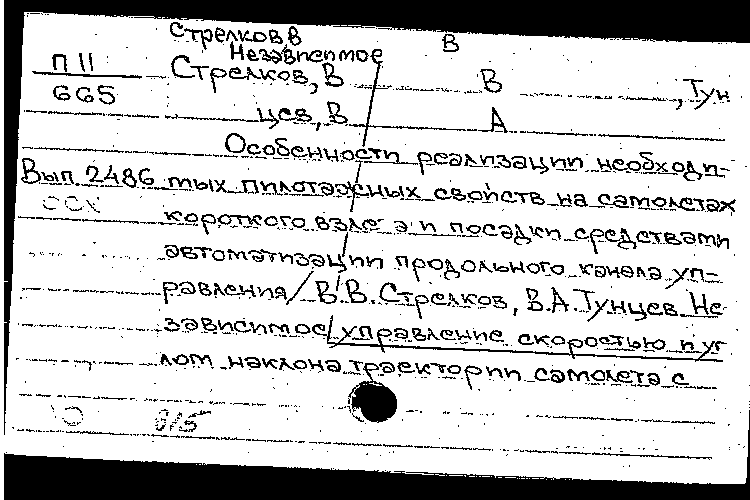 Стрелков В В
Независимое
П 11 Стрелков, В В , Тун
665 цев, В А
Особенности реализации необходи-
Вып. 2486 мых пилотажных свойств на самолетах
короткого взлета и посадки средствами
автоматизации продольного канала уп-
равления / В.В. Стрелков, В.А. Тунцев. Не
зависимое управление скоростью и уг
лом наклона траектории самолета с